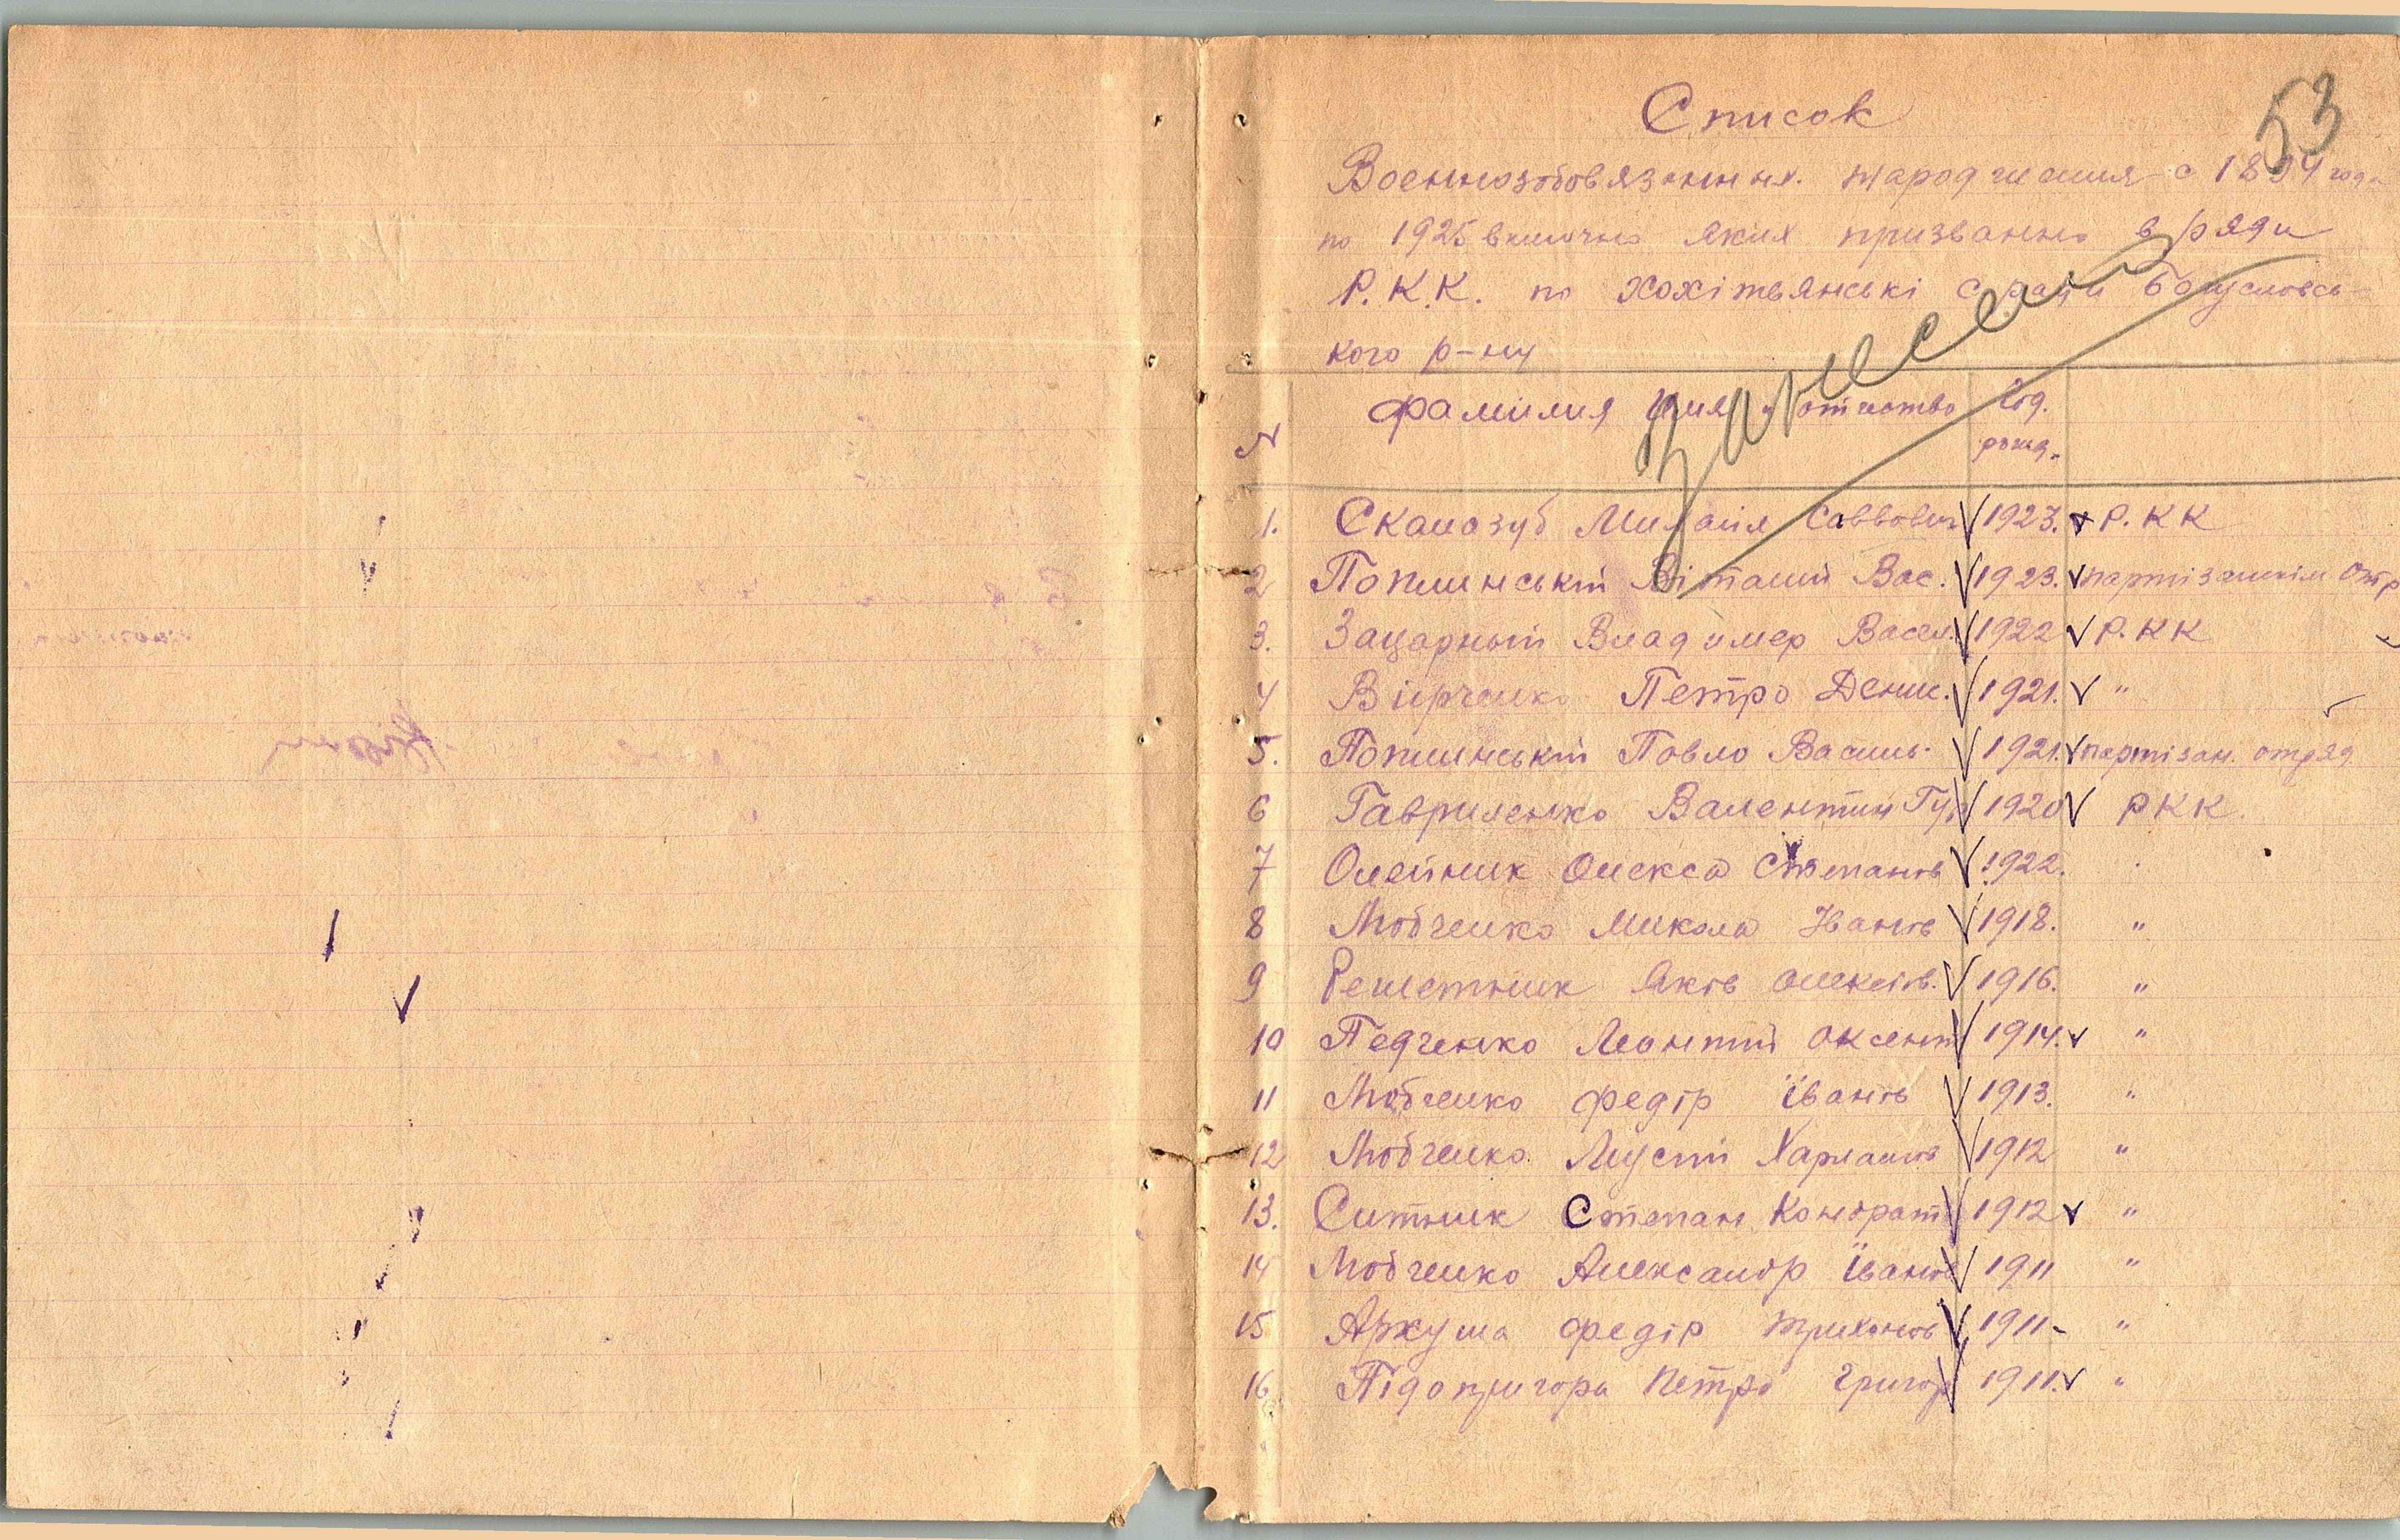 53
Список
Военнозобовязанных. народження с 1894 года
по 1925 включно яких призванно в ряди
Р.К.К. по Хохітвянські с/ради Богуславсь-
кого р-ну
занесени
№ Фамилия Имя и отчество Год. рожд.
1. Скалозуб Михайл Саввович 1923. Р.КК
2 Поплинський Віталий Вас. 1923. партізанскім Отр
3. Зацарный Владимер Васил. 1922 Р.КК
4 Вірченко Петро Денис. 1921. "
5. Поплинський Павло Василь. 1921. партізан. отряд
6 Гавриленко Валентин Гур 1920 РКК.
7 Олейник Олекса Степанов 1922.
8 Любченко Микола Іванов 1918. "
9 Решетник Яків Олексіїв. 1916. "
10 Педченко Леонтий Оксент 1914. "
11 Любченко Федір Іванов 1913. "
12 Любченко Мусій Харлампов 1912 "
13. Ситник Степан Кондрат 1912 "
14 Любченко Александр Іванов 1911 "
15 Аркуша Федір Трихонов 1911- "
16 Підопригора Петро Григор 1911. "